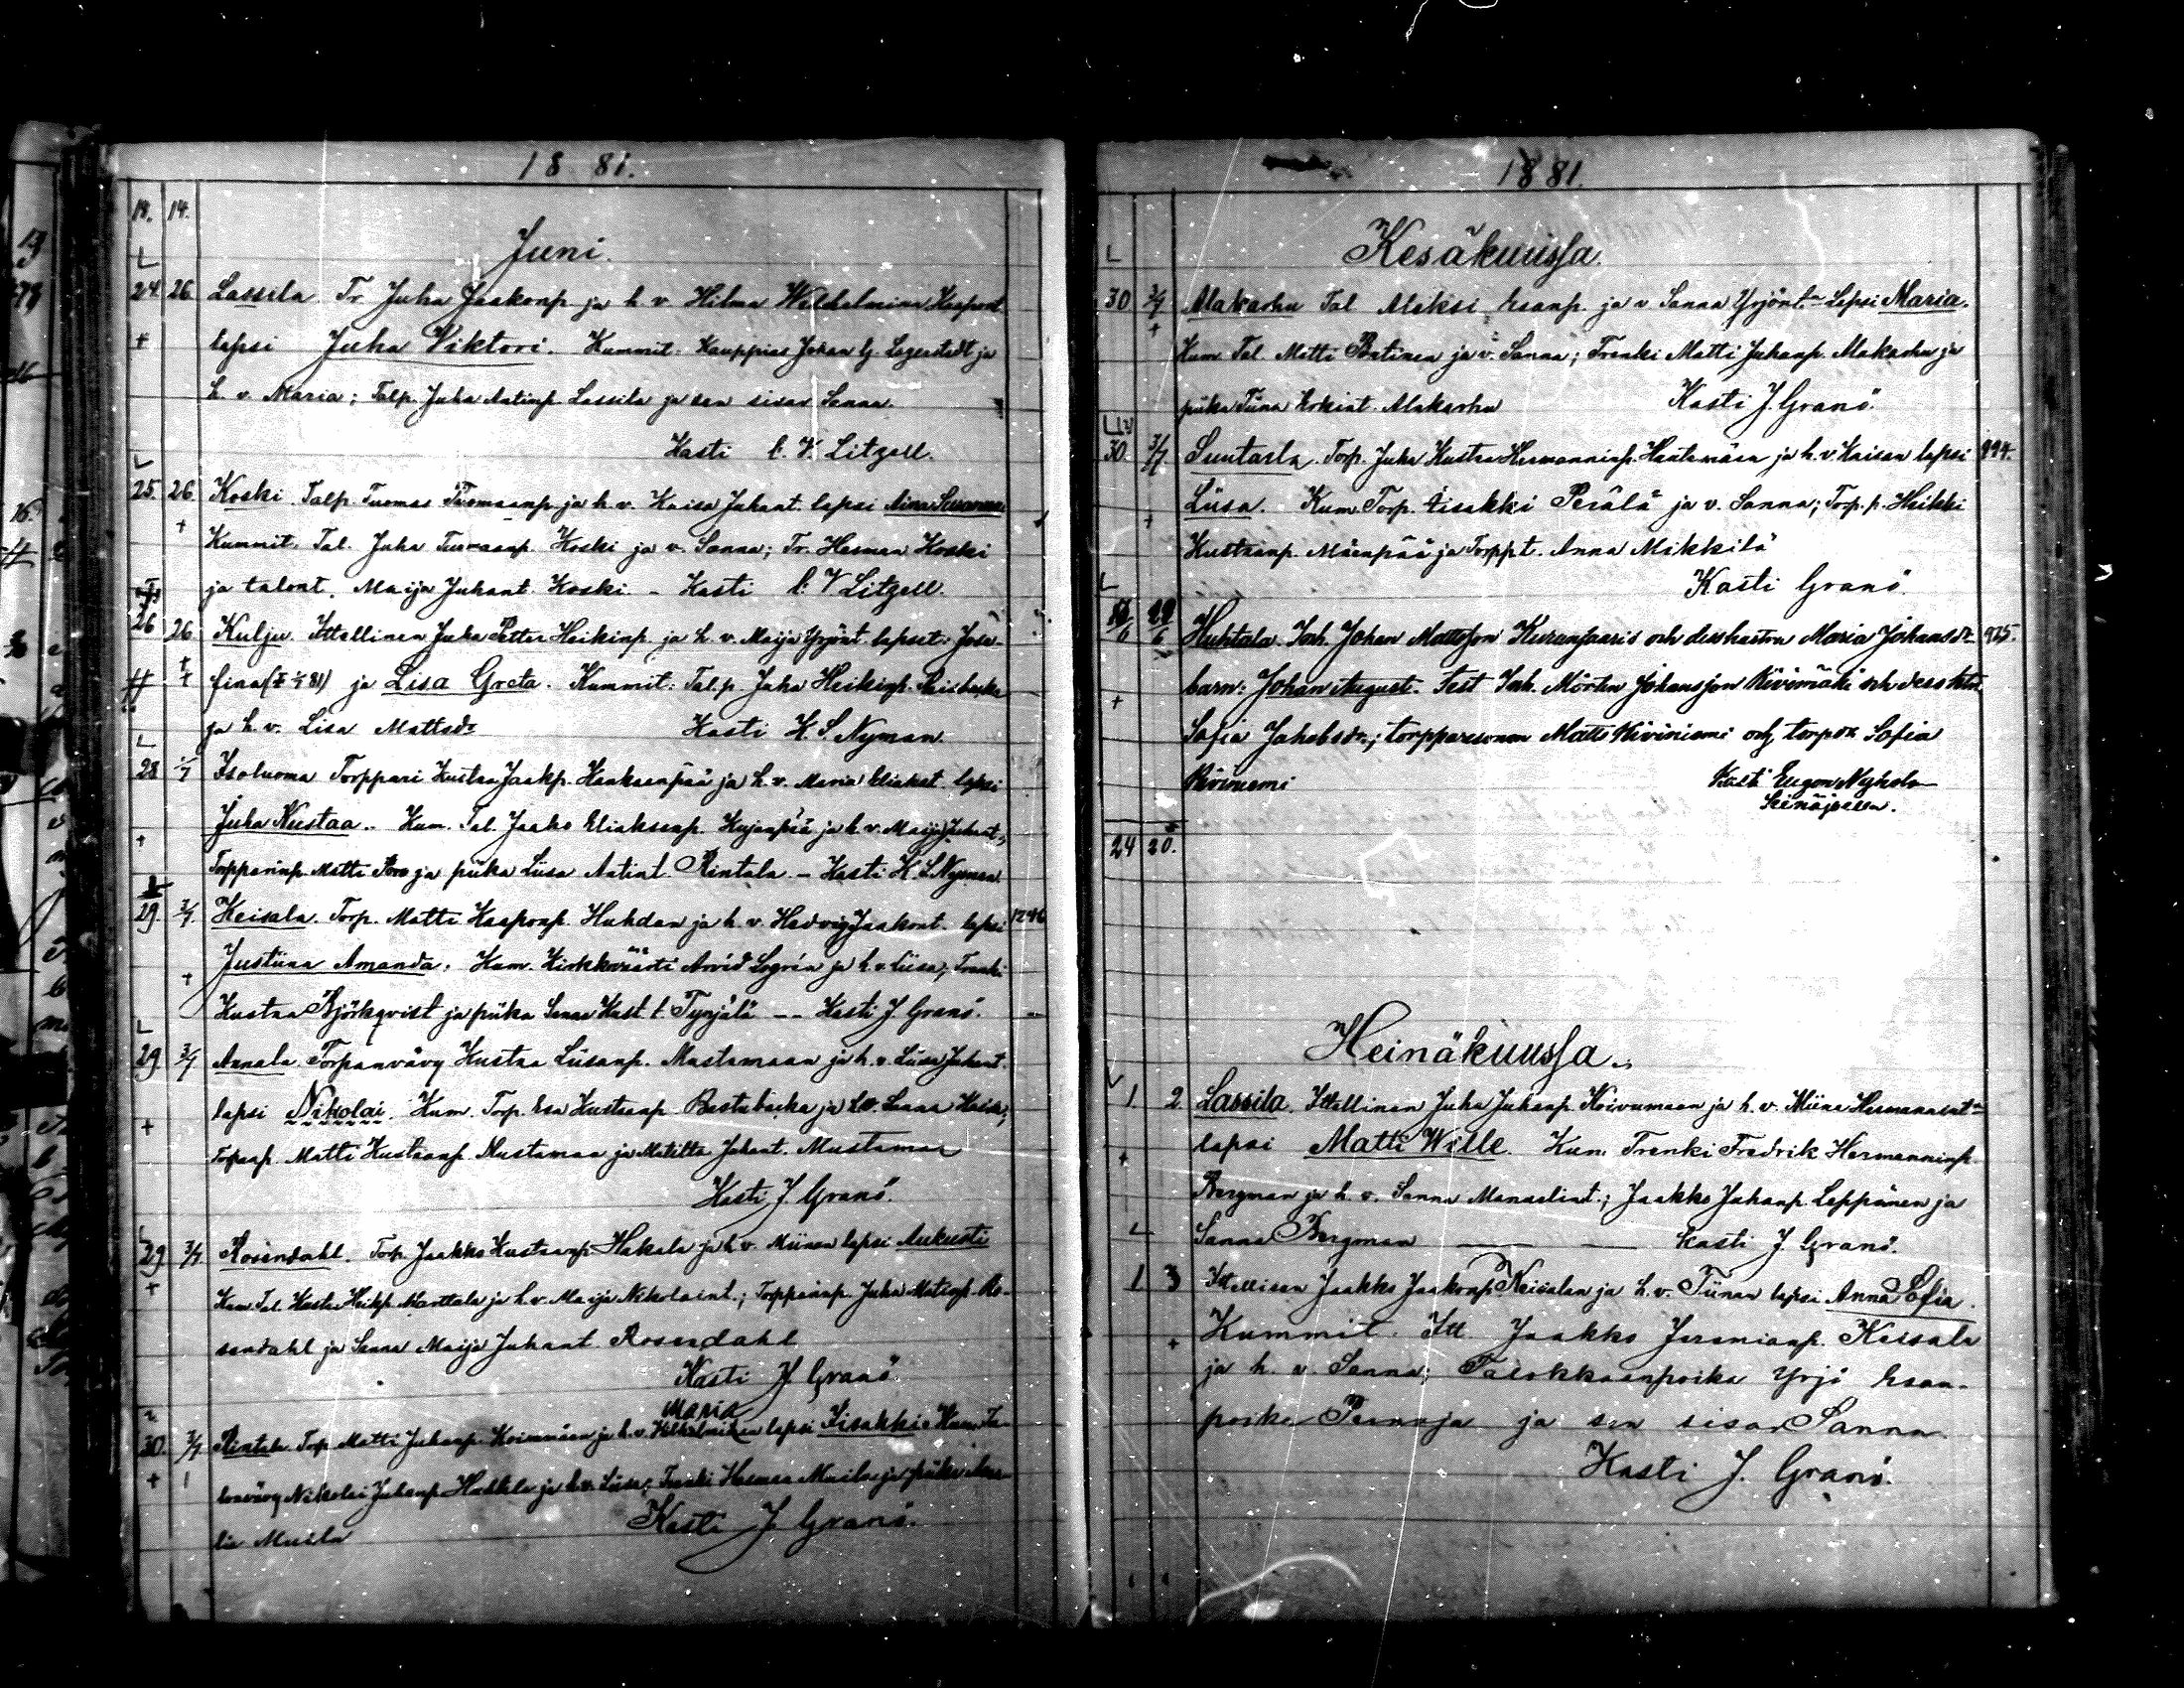 18 81.
14. 14.
Juni.
24 26 Lassila Tr. Juha Jaakonp ja h. v. Hilma Wilhelmina Kaapont
lapsi Juha Viktori. Kummit. Kauppias Johan G. Lagerstedt ja
h. v. Maria; Talp. Juha Antinp. Lassila ja sen sisar Sanna
Kasti C. V. Litzell.
25. 26. Koski. Talp. Tuomas Tuomaanp. ja h. v. Kaisa Juhant. lapsi Aina Susanna
Kummit. Tal. Juha Tuomaanp. Koski ja v. Sanna; Tr. Herman Koski
ja talont. Maija Juhant. Koski. - Kasti C. V Litzell.
26 26. Kulju. Ittellinen Juha Petter Heikinp. ja h. v. Maija Yrjönt. lapset: Jose-
fina ja Lisa Greta. Kummit: Tal.p. Juha Heikinp.
ja h. v. Lisa Mattsdr Kasti K. S Nyman.
28 1/7 Isoluoma Torppari Kustaa Jaakp. Haaksenpää ja h. v. Maria lapsi
Juha Kustaa. Kum. Tal. Jaako Eliaksenp. Kujanpää ja h. v. Maija Juhant.,
Torpparinp. Matti ja piika Liisa Antint. Rintala. - Kasti K. S. Nyman.
29. 3/7 Keisala. Torp. Matti Kaaponp. Huhdan ja h. v. Hedvig Jaakont. lapsi 1246
Justiina Amanda. Kum. Kirkkoväärti Arvid Legrén ja h. v. Liisa; Trenki
Kustaa Björkqvist ja piika Sanna Kust. t. Tyrjälä -- Kasti J. Granö.
29 3/7 Annala. Torpanvävy Kustaa Liisanp. Mustamaan ja h. v. Liisa Juhant.
lapsi Nikolai. Kum. Torp. Esa Kustaanp. ja h. v. Sanna Kaisa;
Matti Kustaanp. Mustamaa ja Matilta Juhant. Mustamaa
Kasti J. Granö.
29 3/7 Rosendahl. Torp. Jaakko Kustaanp. Hakala ja h. v. Miinan lapsi Aukusti
Kum. Tal. Kustaa Heikp. Marttala ja h. v. Maija Nikolaint.; Torpparinp. Juha Matinp. Ro-
sendahl ja Sanna Maija Juhant. Rosendahl
Kasti J Granö.
Maria
30. 3/7 Rintala Torp. Matti Juhanp. Koivumäen ja h. v. Vilhelmiinan lapsi Iisakki. Kum. Ta-
lonvävy Nikolai Juhanp. ja h. v. Liisa; Trenki Herman Musila ja piika
lia Musila Kasti J Granö.
1881.
Kesäkuussa.
30 3/7 Alakarhu Tal Aleksi Esanp. ja v Sanna Yrjönt. Lapsi Maria.
Kum. Tal. Matti Pentinen ja v. Sanna; Trenki Matti Juhanp. Alakarhu ja
piika Tiina Erkint. Alakarhu Kasti J. Granö.
30. 3/7 Suutarla. Torp. Juha Kustaa Hermanninp. Hautamäen ja h. v. Kaisan lapsi 994.
Liisa. Kum. Torp. Iisakki Perälä ja v. Sanna; Torp. p. Heikki
Kustaanp. Mäenpää ja Torpp t. Anna Mikkilä
Kasti Granö.
Huhtala. Inh. Johan Mattsson Kurunsaaris och dess hustru Maria Johansdr 925.
barn: Johan August. Test Inh. Mårten Johansson Kivimäki och dess htru
Sofia Jakobsdr; torpparesonen Matts Kiviniemi och torpdr. Sofia
Kiviniemi Kasti Eugen Nyholm
Seinäjoella.
24 20.
Heinäkuussa.
1. 2 Lassila. Ittellinen Juha Juhanp. Koivumaan ja h. v. Miina Hermannint
lapsi Matti Wille. Kum. Trenki Fredrik Hermanninp.
Bergman ja h. v. Sanna Manaslint.; Jaakko Juhanp. Leppänen ja
Sanna Bergman Kasti J. Granö.
1 3 Ittellisen Jaakko Jaakonp Keisalan ja h. v. Tiinan lapsi Anna Sofia.
Kummit. Itt. Jaakko Jeremianp. Kessala
ja h. v. Sanna; Talokkaanpoika Yrjö Esan-
poika Pernaja ja sen sisar Sanna.
Kasti J. Granö.